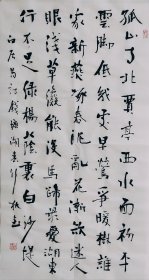 孤山寺北賈亭西水面初平
雲腳低幾處早鶯爭暖樹誰
家新燕啄春泥亂花漸欲迷人
眼淺草纔能沒馬蹄最愛湖東
行不足綠楊陰裏白沙堤
白居易詩錢塘湖春行